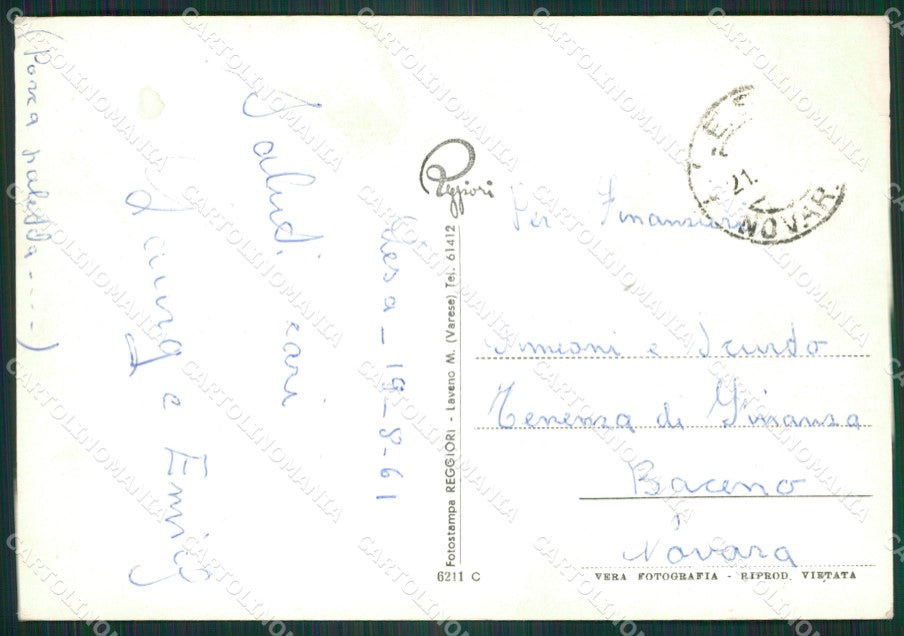 Lesa - 19-8-61
Saluti cari
e Emig
Reggiori
Fotostampa REGGIORI - Laveno M. (Varese) Tel. 61412
6211 C
NOVAR
21.
Per Finanzieri
Simeoni e Scurdo
Tenenza di Finanza
Baceno
Novara
VERA FOTOGRAFIA - RIPROD. VIETATA
CARTOLINOMANIA